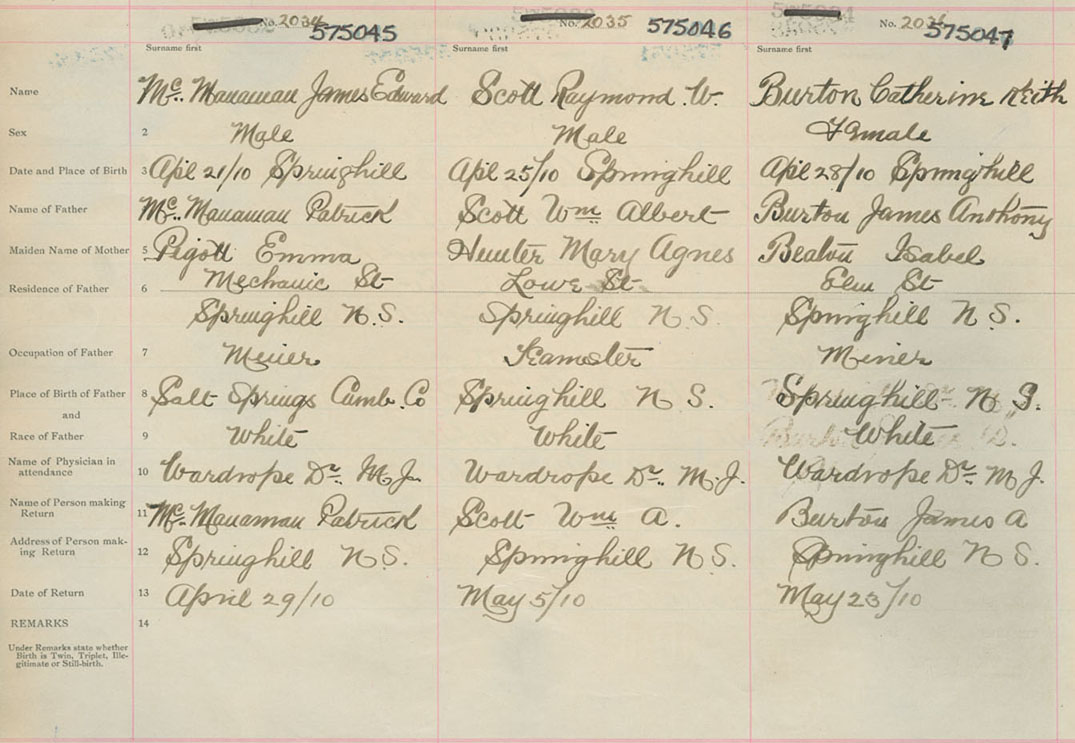 No. 2034 575045 No. 2035 575046 No. 575047
Surname first Surname first Surname first
Name Mc. Manaman James Edward Scott Raymond W. Burton Catherine Keith
Sex 2 Male Male Female
Date and Place of Birth 3 Apl 21/10 Springhill Apl 25/10 Springhill Apl 28/10 Springhill
Name of Father Mc. Manaman Patrick Scott Wm Albert Burton James Anthony
Maiden Name of Mother 5 Pigott Emma Hunter Mary Agnes Beaton Isabel
Mechanic St Lowe St Elm St
Residence of Father 6
Springhill N.S. Springhill N.S. Springhill N S.
Occupation of Father 7 Miner Teamster Miner
Place of Birth of Father 8 Salt Springs Cumb. Co Springhill N S. Springhill N S.
and
Race of Father 9 White White White
Name of Physician in
attendance 10 Wardrope Dr. M.J. Wardrope Dr. M.J. Wardrope Dr. M J.
Name of Person making
Return 11 Mc. Manaman Patrick Scott Wm A. Burton James A
Address of Person mak-
ing Return 12 Springhill N S. Springhill N S. Springhill N S.
Date of Return 13 April 29/10 May 5/10 May /10
REMARKS 14
Under Remarks state whether
Birth is Twin, Triplet, Ille-
gitimate or Still-birth.